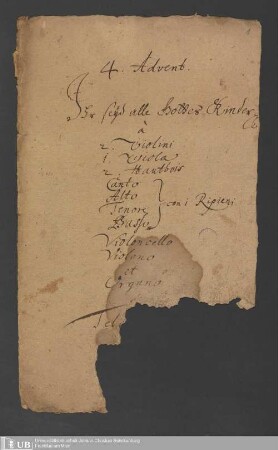 4. Advent.
Ihr seyd alle Gottes Kinder
à
2. Violini
1. Viola
2. Hautbois
Canto
Alto
Tenore
Basso
con i Ripieni
Violoncello
Violono
et
Organo
Tel
UB
Universitätsbibliothek Johann Christian Senckenberg
Frankfurt am Main